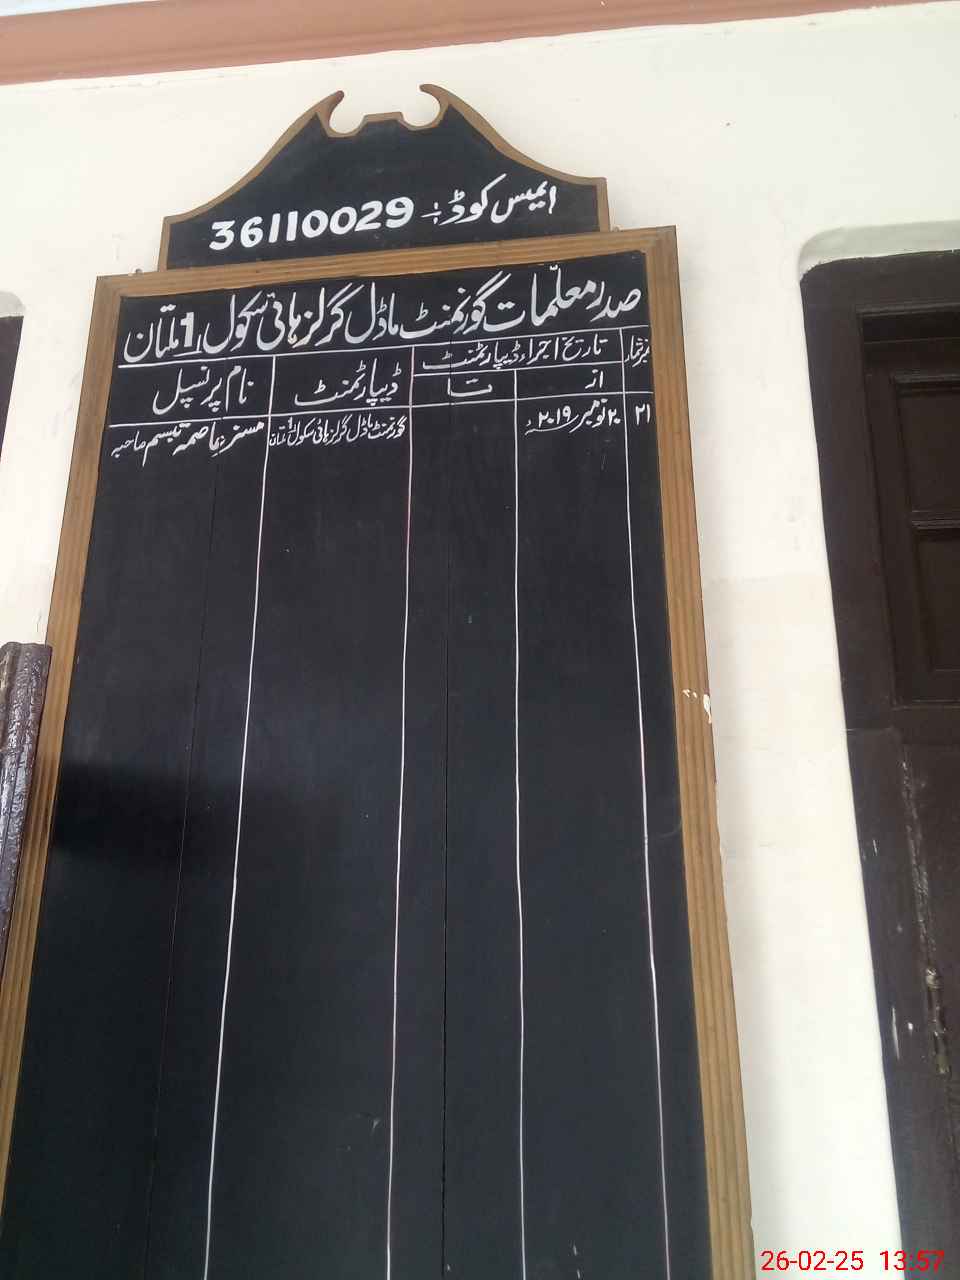 ایمیس کوڈ:- 36110029
صدر معلّمات گورنمنٹ ماڈل گرلز ہائی سکول 1 ملتان
نمبر شمار تاریخ اجراء ڈیپارٹمنٹ ڈیپارٹمنٹ نام پرنسپل
از تا
۲۱ ۲۰ نومبر ۲۰۱۹ء گورنمنٹ ماڈل گرلز ہائی سکول 1 ملتان مسز عاصمہ تبسم صاحبہ
26-02-25 13:57